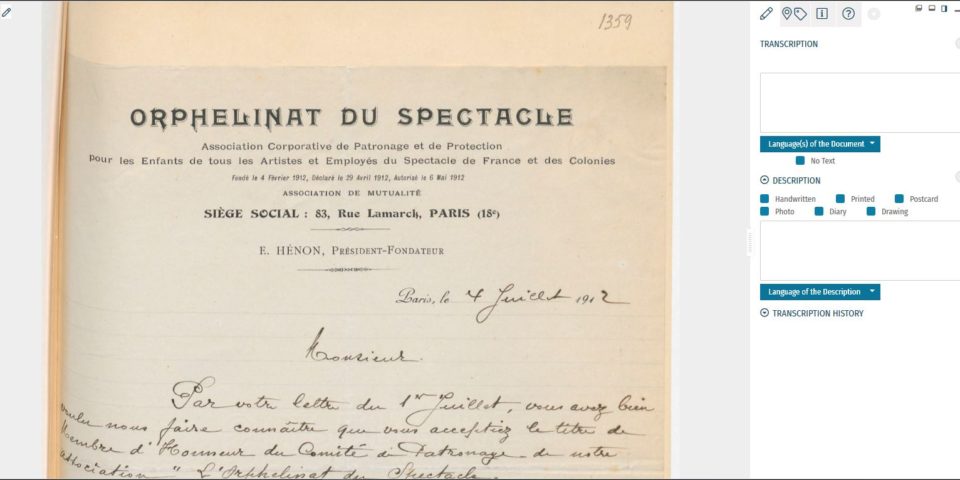 1359
ORPHELINAT DU SPECTACLE
Association Corporative de Patronage et de Protection
pour les Enfants de tous les Artistes et Employés du Spectacle de France et des Colonies
Fondé le 4 Février 1912, Déclaré le 29 Avril 1912, Autorisé le 6 Mai 1912
ASSOCIATION DE MUTUALITÉ
SIÈGE SOCIAL : 83, Rue Lamarck, PARIS (18e)
E. HÉNON, PRÉSIDENT-FONDATEUR
Paris, le 4 Juillet 1912
Monsieur.
Par votre lettre du 1er Juillet, vous avez bien
voulu nous faire connaître que vous acceptiez le titre de
Membre d'Honneur du Comité de Patronage de notre
association " L'Orphelinat du Spectacle.
TRANSCRIPTION
Language(s) of the Document
No Text
DESCRIPTION
Handwritten Printed Postcard
Photo Diary Drawing
Language of the Description
TRANSCRIPTION HISTORY